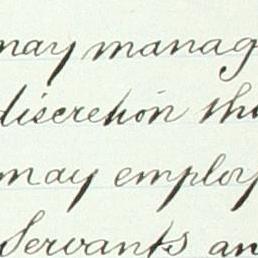 may manag
discretion the
may employ
Servants an